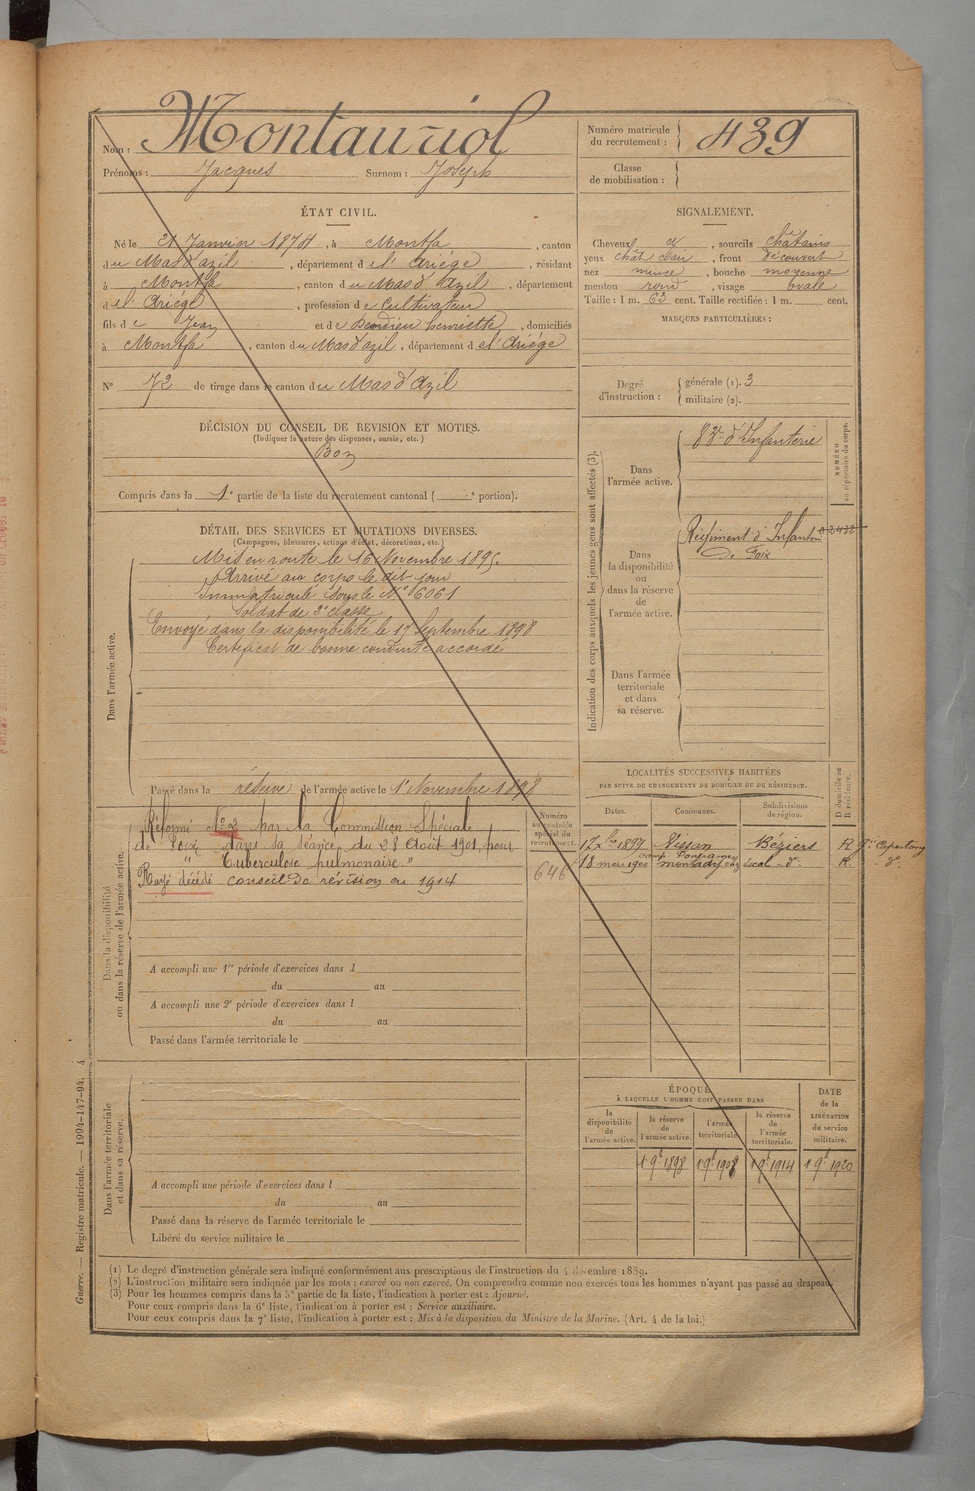 Nom : Montauriol
Prénoms : Jacques Surnom : Joseph
Numéro matricule du recrutement : 439
Classe de mobilisation :
ÉTAT CIVIL.
Né le 21 Janvier 1874, à Montfa, canton
du Mas d'azil, département de l'Ariège, résidant
à Montfa, canton du Mas d'Azil, département
de l'Ariège, profession de Cultivateur
fils de Jean et de Henriette, domiciliés
à Montfa, canton du Mas d'azil, département de l'Ariège
N° 72 de tirage dans le canton du Mas d'Azil
SIGNALEMENT.
Cheveux d°, sourcils châtains
yeux chât clair, front découvert
nez mince, bouche moyenne
menton rond, visage ovale
Taille : 1 m. 63 cent. Taille rectifiée : 1 m. cent.
MARQUES PARTICULIÈRES :
Degré d'instruction : générale (1). 3
militaire (2).
DÉCISION DU CONSEIL DE REVISION ET MOTIFS.
(Indiquer la nature des dispenses, sursis, etc.)
Bon
Compris dans la 1e partie de la liste du recrutement cantonal ( e portion).
DÉTAIL DES SERVICES ET MUTATIONS DIVERSES.
(Campagnes, blessures, actions d'éclat, décorations, etc.)
Dans l'armée active.
Mis en route le 16 Novembre 1895.
Arrivé au corps le dit jour
Immatriculé sous le N° 6061
Soldat de 2e classe
Envoyé dans la disponibilité le 17 Septembre 1898
Certificat de bonne conduite accordé
Passé dans la réserve de l'armée active le 1er Novembre 1898
Indication des corps auxquels les jeunes gens sont affectés (3).
Dans l'armée active.
83e d'Infanterie
NUMÉRO au répertoire du corps.
Dans la disponibilité ou dans la réserve de l'armée active.
Régiment d'Infanterie
de Foix
Dans l'armée territoriale et dans sa réserve.
Dans la disponibilité ou dans la réserve de l'armée active.
Réformé N° 2 par la Commission Spéciale
de Foix dans sa séance du 28 Août 1901, pour
" Tuberculose pulmonaire. "
Rayé décédé conseil de révision en 1914
Numéro au contrôle spécial du recrutement.
646
A accompli une 1re période d'exercices dans l
du au
A accompli une 2e période d'exercices dans l
du au
Passé dans l'armée territoriale le
LOCALITÉS SUCCESSIVES HABITÉES
PAR SUITE DE CHANGEMENTS DE DOMICILE OU DE RÉSIDENCE.
Dates. Communes. Subdivisions de région. D domicile ou R résidence.
1897 Nissan Béziers R
18 mars 1900 montady d° R d°
Dans l'armée territoriale et dans sa réserve.
A accompli une période d'exercices dans l
du au
Passé dans la réserve de l'armée territoriale le
Libéré du service militaire le
ÉPOQUE
À LAQUELLE L'HOMME DOIT PASSER DANS
la disponibilité de l'armée active. la réserve de l'armée active. l'armée territoriale. la réserve de l'armée territoriale.
DATE de la LIBÉRATION du service militaire.
1 9bre 1898 1 9bre 1908 1 9bre 1914 1 9bre 1920
(1) Le degré d'instruction générale sera indiqué conformément aux prescriptions de l'instruction du 4 décembre 1889.
(2) L'instruction militaire sera indiquée par les mots : exercé ou non exercé. On comprendra comme non exercés tous les hommes n'ayant pas passé au drapeau.
(3) Pour les hommes compris dans la 5e partie de la liste, l'indication à porter est : Ajourné.
Pour ceux compris dans la 6e liste, l'indication à porter est : Service auxiliaire.
Pour ceux compris dans la 7e liste, l'indication à porter est : Mis à la disposition du Ministre de la Marine. (Art. 4 de la loi.)
Guerre. — Registre matricule. — 1994-147-94. 4